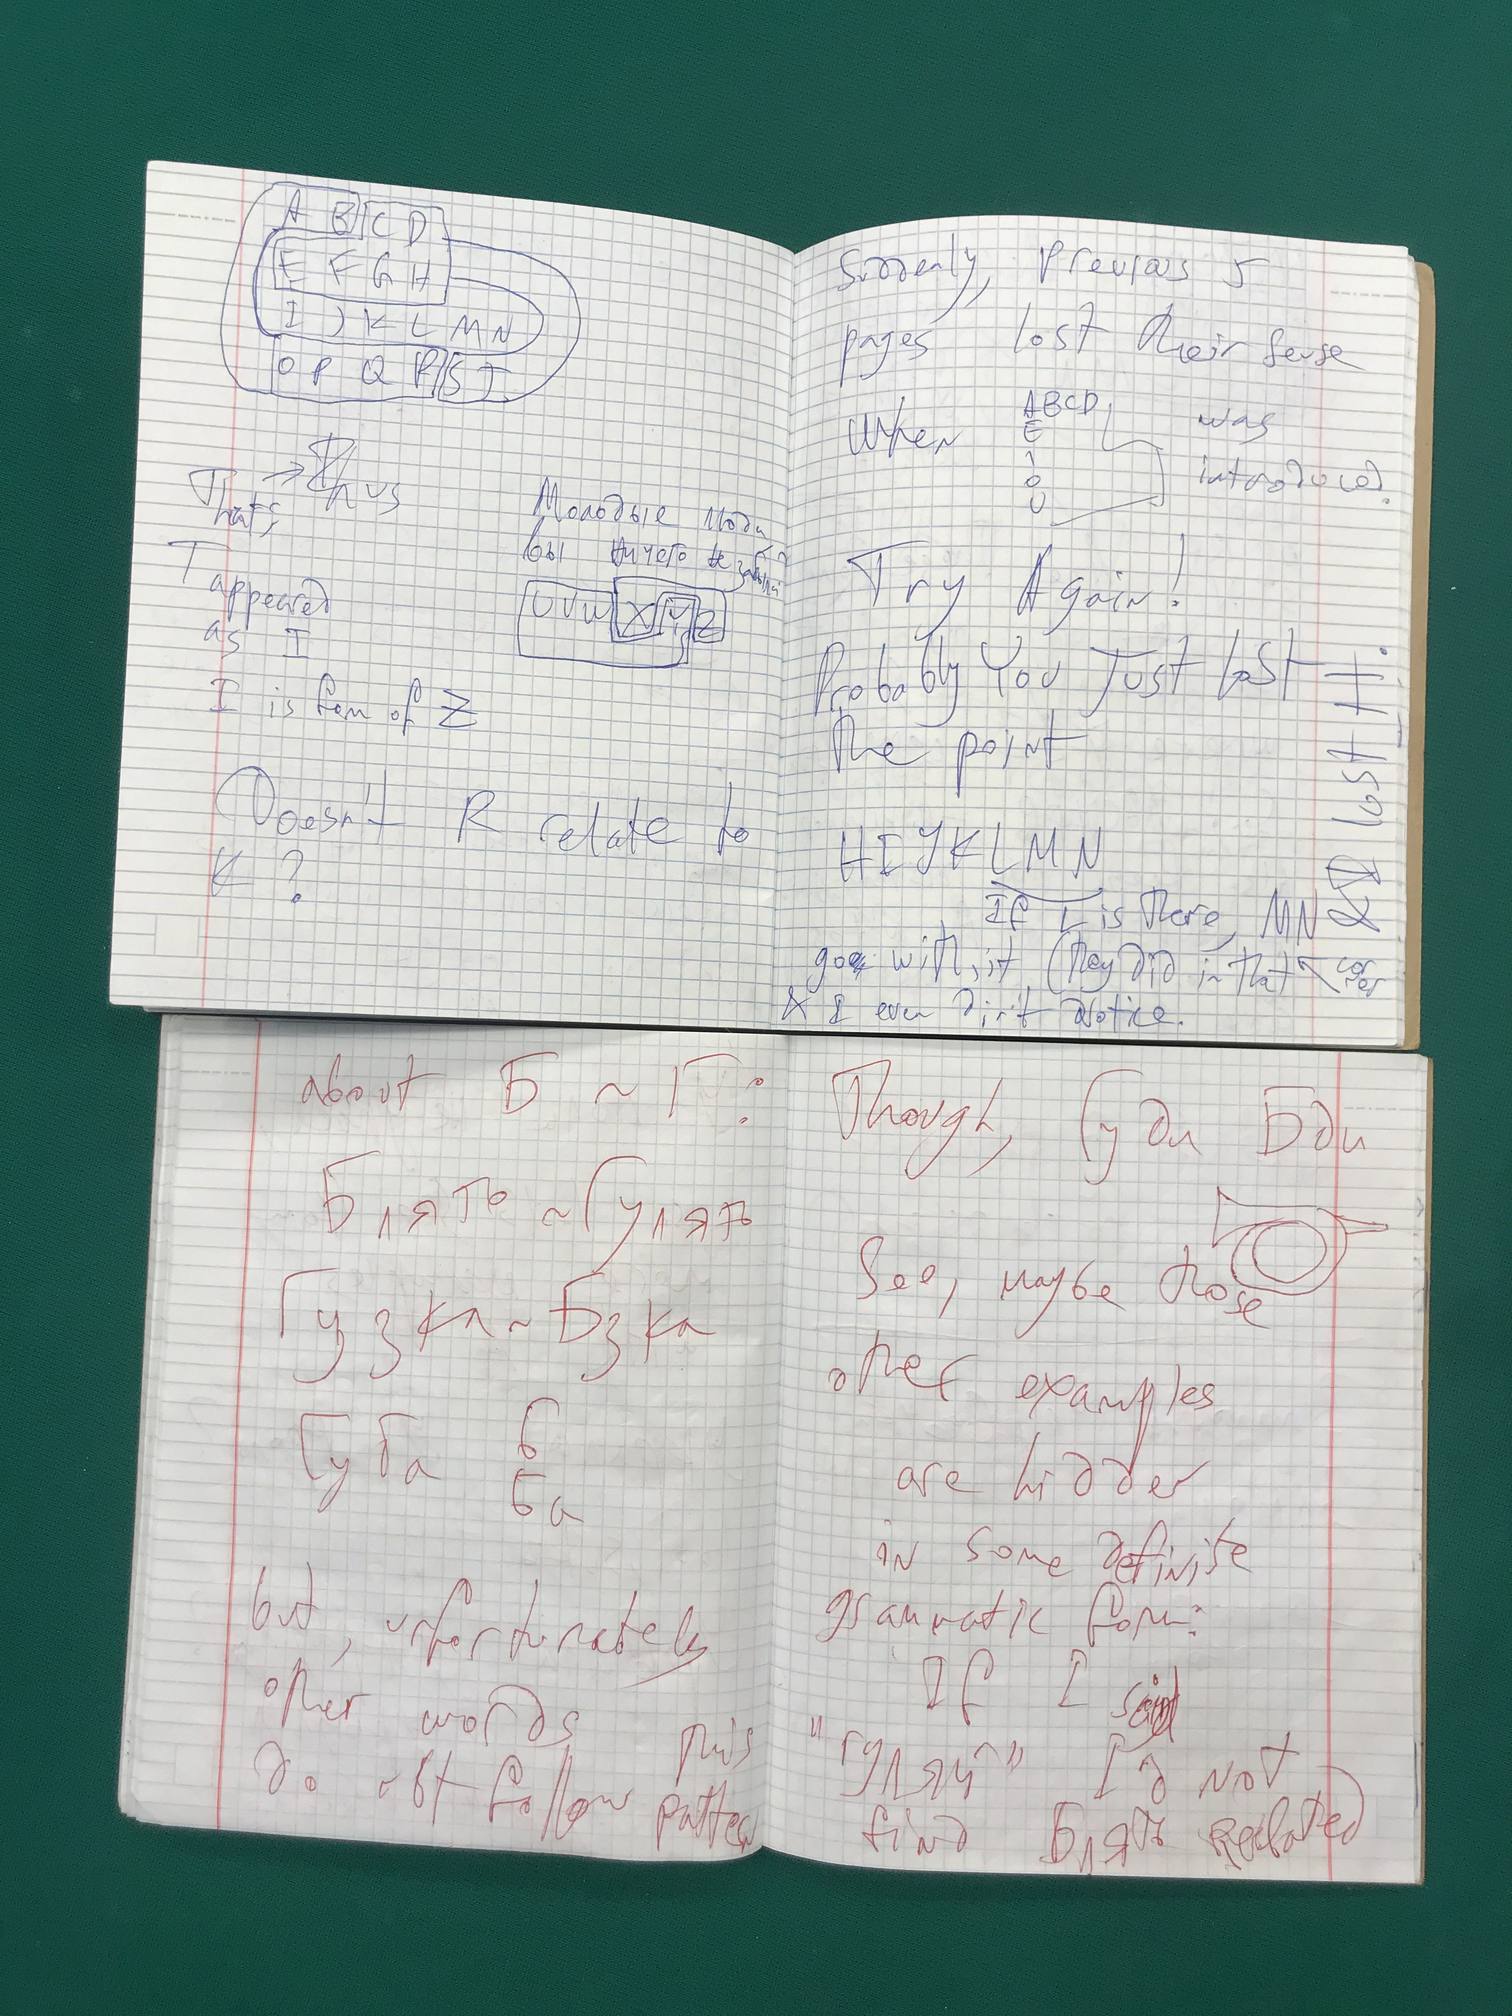 A B C D
E F G H
I J K L M N
O P Q R S T
That's → Thus
T
appeared
as I
I is fem of Z
Молодые люди
вы ничего не забыли
U V W X Y Z
Doesn't R relate to
K ?
Suddenly, previous 5
pages lost their sense
When ABCD was
E
I introduced.
O
U
Try Again!
Probably You Just lost
the point
HIJKLMN
If L is there, MN
goes with it (they did in that corner
& I even din't notice.
lost it.
about Б ~ Г:
Блять ~ Гулять
Гузка ~ Бзка
Губа б
ба
but, unfortunately
other words this
do not follow pattern
Though, Гуди Бди
See, maybe those
other examples
are hidden
in some definite
grammatic form:
If I said
"гуляй" I'd not
find Блять related